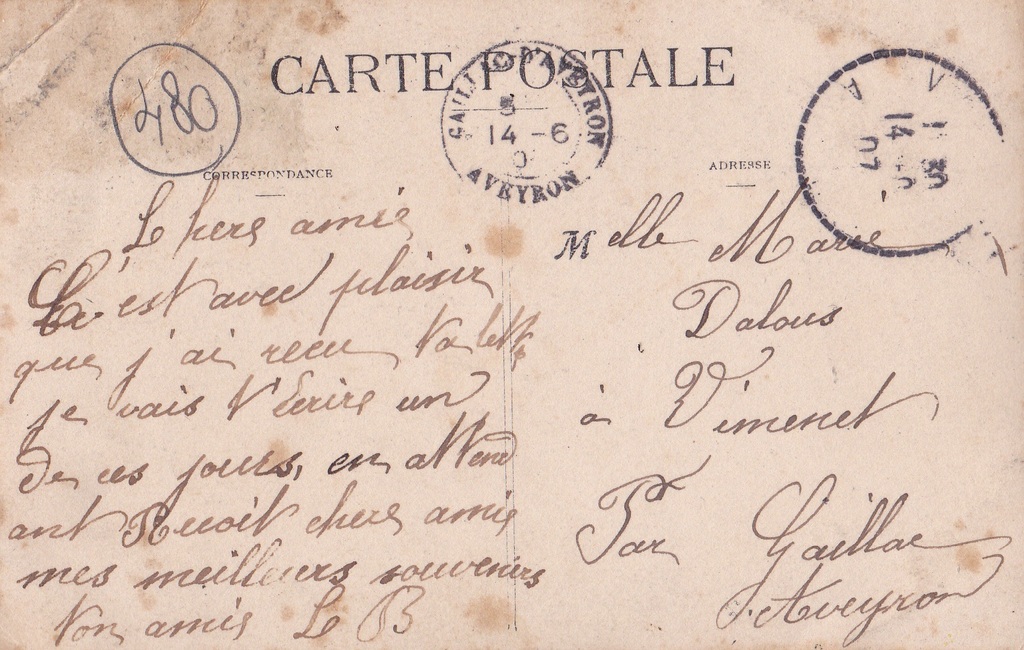 480
CARTE POSTALE
GAILLAC-D'AVEYRON
5
14 -6
0
AVEYRON
V A
1 35
14
07
CORRESPONDANCE
ADRESSE
Chere amie
C'est avec plaisir
que j'ai recu ta lettre
je vais t'écrire un
de ces jours, en attend
ant Recoit chere amie
mes meilleurs souvenirs
ton amie L B
Melle Marie
Dalous
à Vimenet
Par Gaillac
Aveyron